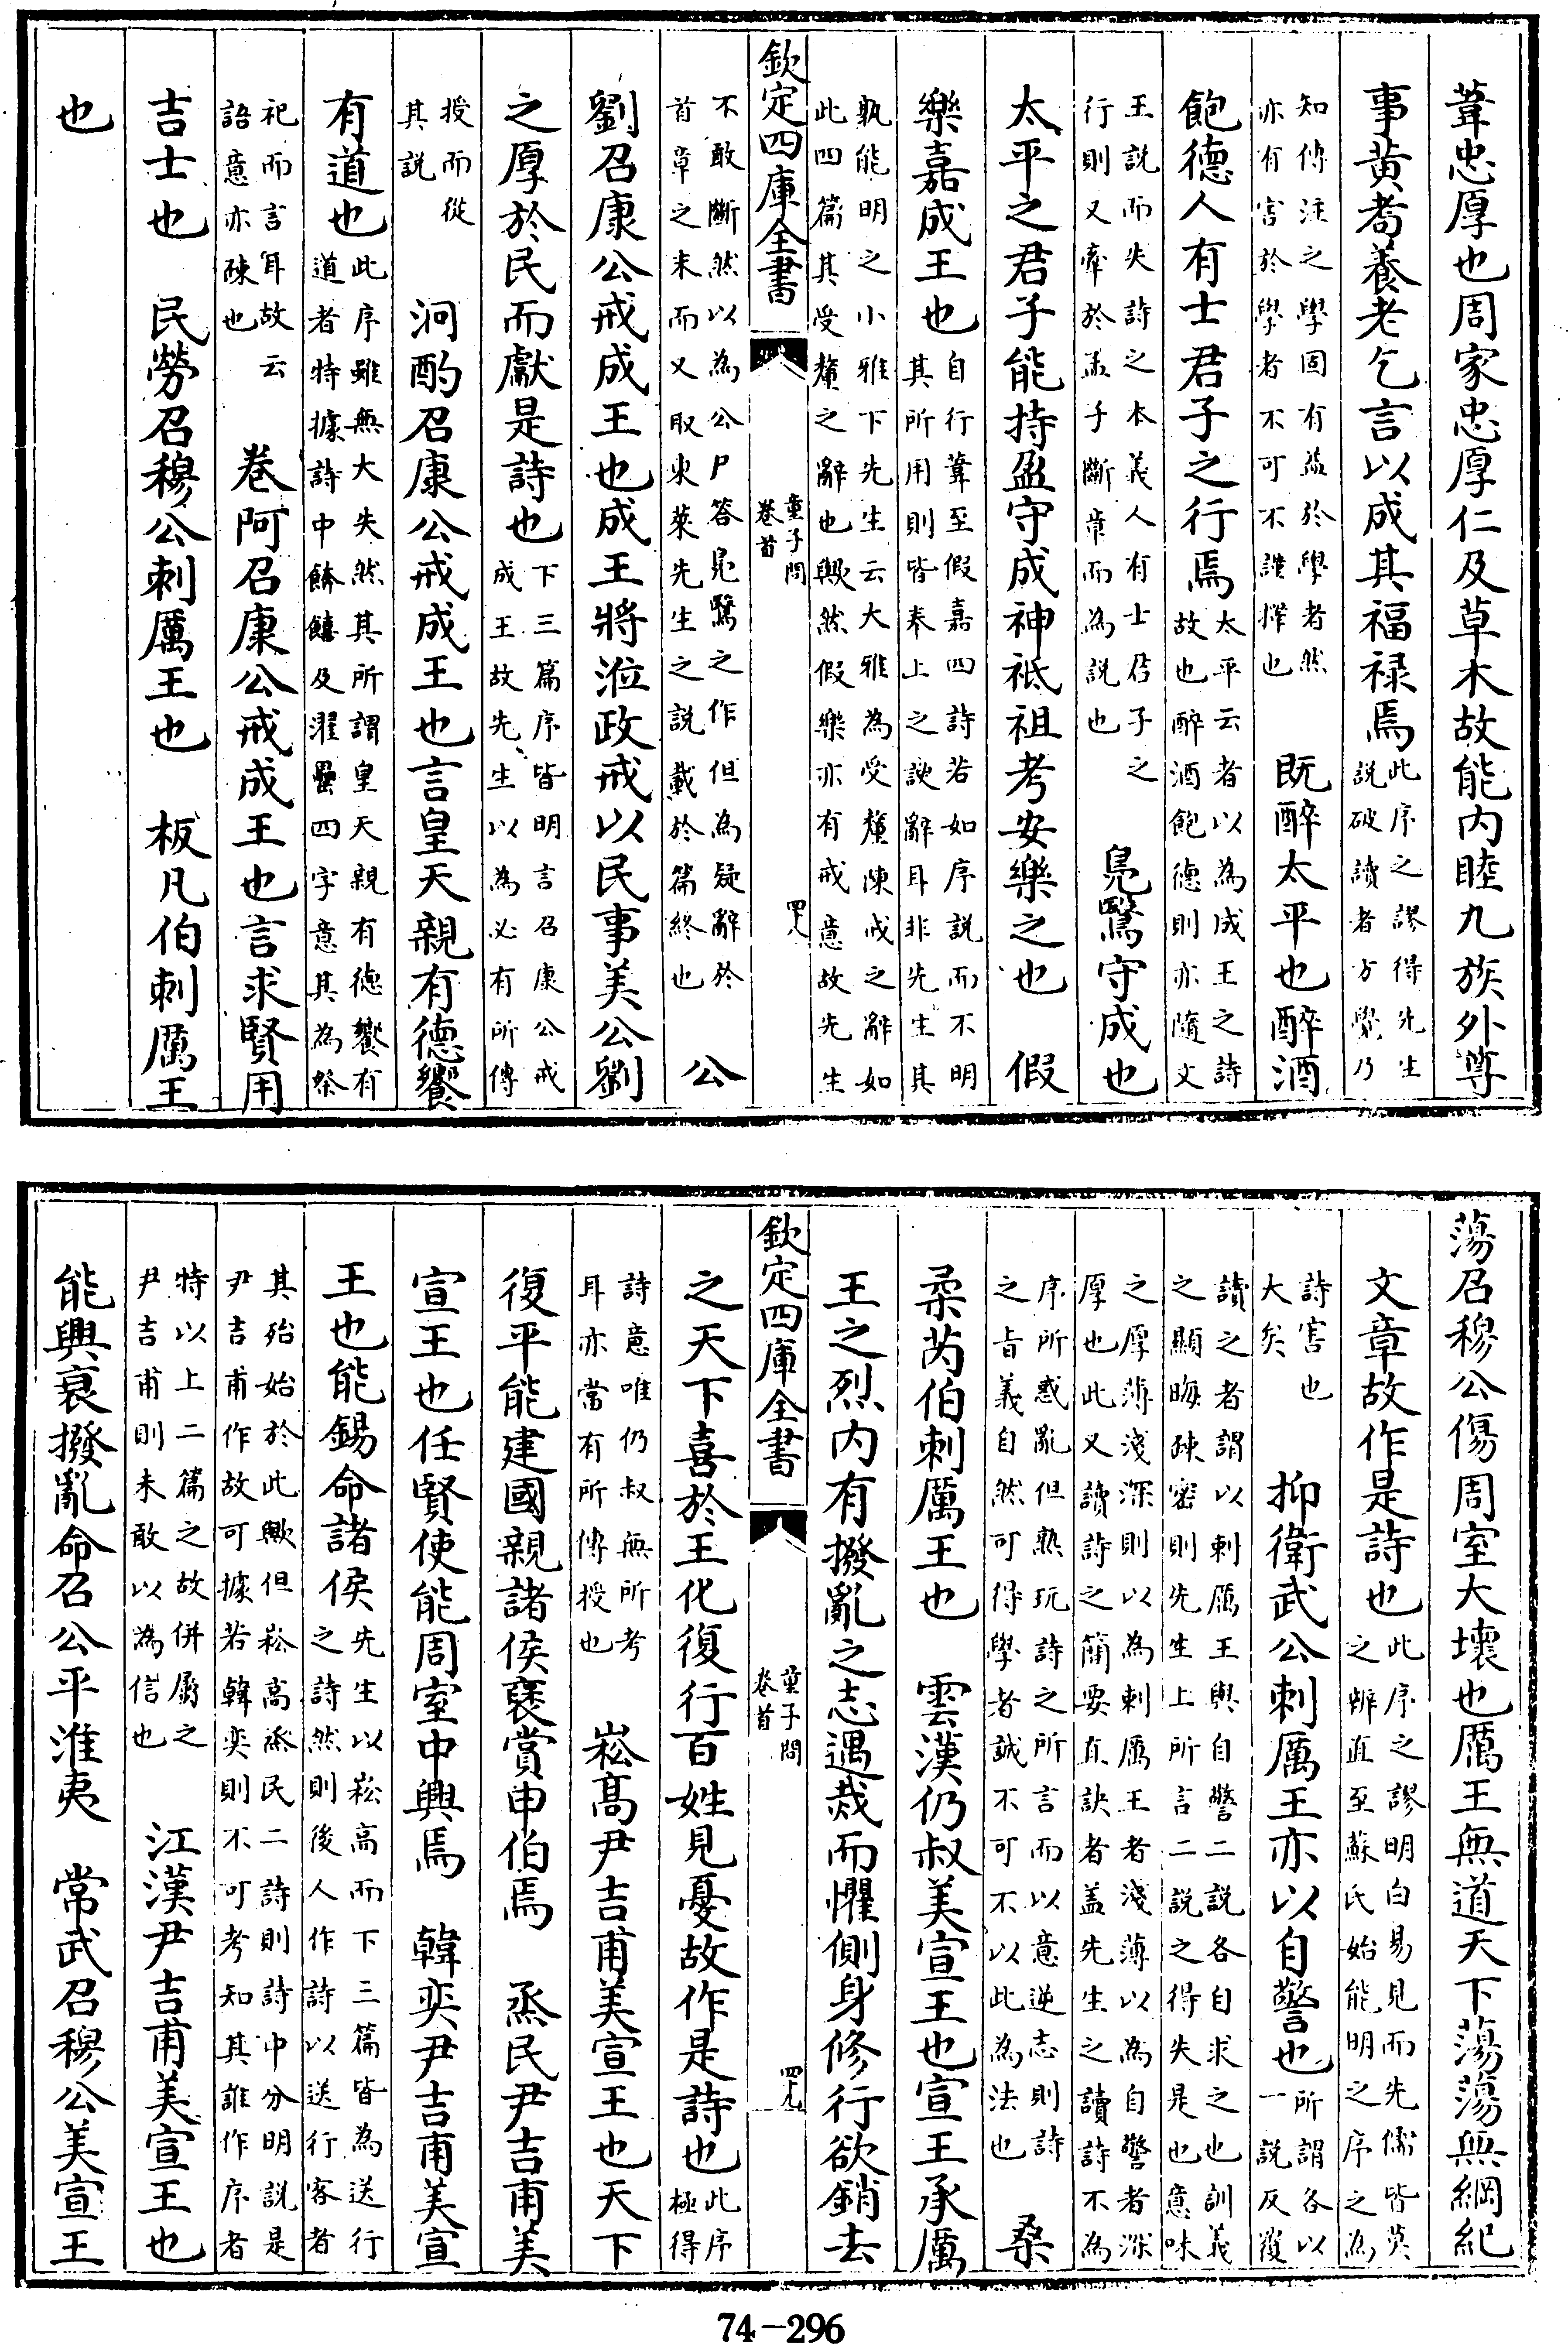 葦忠厚也周家忠厚仁及草木故能内睦九族外尊
事黄耇養老乞言以成其福禄焉此序之謬得先生說破讀者方覺乃
知傳注之學固有益於學者然亦有害於學者不可不謹擇也　既醉太平也醉酒
飽德人有士君子之行焉太平云者以為成王之詩故也醉酒飽德則亦隨文
王說而失詩之本義人有士君子之行則又牽於孟子斷章而為說也　鳧鷖守成也
太平之君子能持盈守成神祗祖考安樂之也　假
樂嘉成王也自行葦至假嘉四詩若如序說而不明其所用則皆奉上之諛辭耳非先生其
孰能明之小雅下先生云大雅為受釐陳戒之辭如此四篇其受釐之辭也歟然假樂亦有戒意故先生
不敢斷然以為公尸答鳧鷖之作但為疑辭於首章之末而又取東萊先生之說載於篇終也　公
劉召康公戒成王也成王將涖政戒以民事美公劉
之厚於民而獻是詩也下三篇序皆明言召康公戒成王故先生以為必有所傳
授而從其說　泂酌召康公戒成王也言皇天親有德饗
有道也此序雖無大失然其所謂皇天親有德饗有道者特據詩中餴饎及濯罍四字意其為祭
祀而言耳故云語意亦疎也　卷阿召康公戒成王也言求賢用
吉士也　民勞召穆公刺厲王也　板凡伯刺厲王
也
欽定四庫全書　童子問卷首　四八
蕩召穆公傷周室大壞也厲王無道天下蕩蕩無綱紀
文章故作是詩也此序之謬明白易見而先儒皆莫之辨直至蘇氏始能明之序之為
詩害也大矣　抑衛武公刺厲王亦以自警也所謂各以一說反覆
讀之者謂以刺厲王與自警二說各自求之也訓義之顯晦疎密則先生上所言二說之得失是也意味
之厚薄淺深則以為刺厲王者淺薄以為自警者深厚也此又讀詩之簡要直訣者盖先生之讀詩不為
序所惑亂但熟玩詩之所言而以意逆志則詩之旨義自然可得學者誠不可不以此為法也　桑
柔芮伯刺厲王也　雲漢仍叔美宣王也宣王承厲
王之烈内有撥亂之志遇烖而懼側身修行欲銷去
之天下喜於王化復行百姓見憂故作是詩也此序極得
詩意唯仍叔無所考耳亦當有所傳授也　崧髙尹吉甫美宣王也天下
復平能建國親諸侯褒賞申伯焉　烝民尹吉甫美
宣王也任賢使能周室中興焉　韓奕尹吉甫美宣
王也能錫命諸侯先生以崧高而下三篇皆為送行之詩然則後人作詩以送行客者
其殆始於此歟但崧高烝民二詩則詩中分明說是尹吉甫作故可據若韓奕則不可考知其誰作序者
特以上二篇之故併屬之尹吉甫則未敢以為信也　江漢尹吉甫美宣王也
能興衰撥亂命召公平淮夷　常武召穆公美宣王
欽定四庫全書　童子問卷首　四十九
74-296